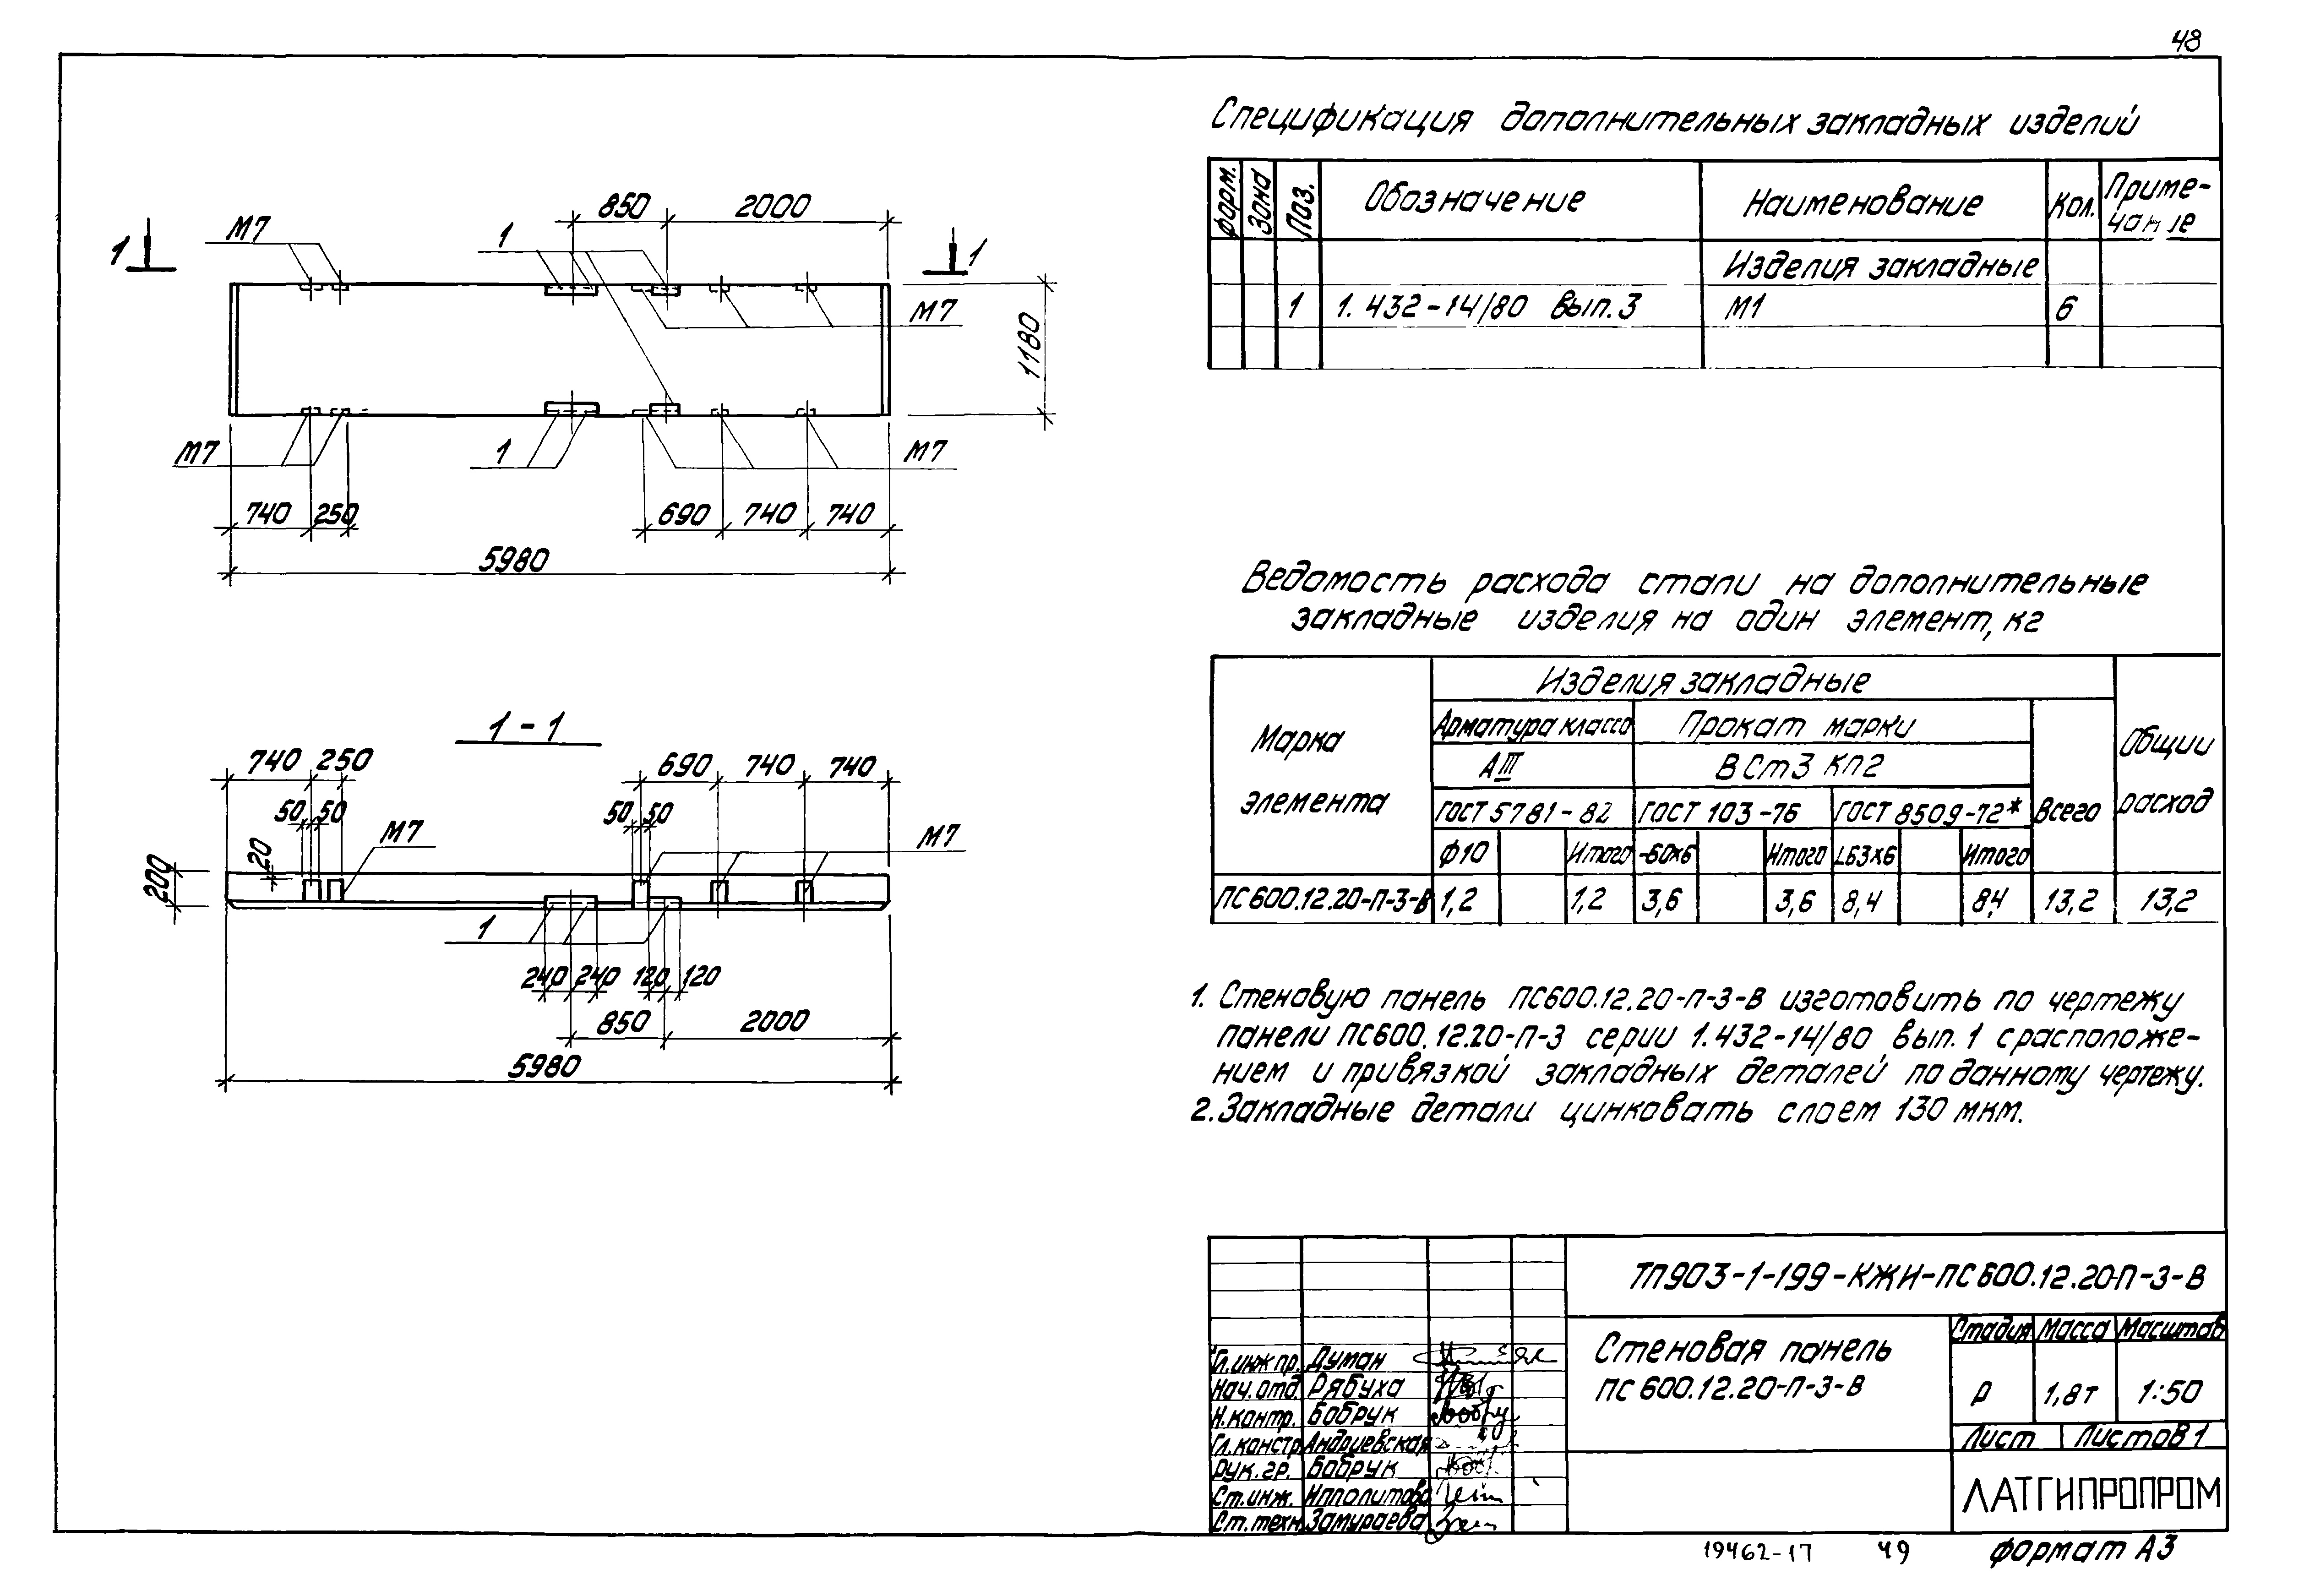 48
Спецификация дополнительных закладных изделий
Форм. Зона Поз. Обозначение Наименование Кол. Приме-
чание
Изделия закладные
1 1.432-14/80 Вып.3 М1 6
850 2000
1 М7 1 1
М7
1180
М7 1 М7
740 250 690 740 740
5980
Ведомость расхода стали на дополнительные
закладные изделия на один элемент, кг
Марка элемента
Изделия закладные
Общий расход
Арматура класса Прокат марки
АIII ВСт3 КП2
ГОСТ 5781-82 ГОСТ 103-76 ГОСТ 8509-72* Всего
Ф10 Итого -60х6 Итого L63х6 Итого
ПС600.12.20-П-3-В 1,2 1,2 3,6 3,6 8,4 8,4 13,2 13,2
1-1
740 250 690 740 740
50 50 50 50
М7 М7
20
200
1
240 240 120 120
850 2000
5980
1. Стеновую панель ПС600.12.20-П-3-В изготовить по чертежу
панели ПС600.12.20-П-3 серии 1.432-14/80 вып.1 с расположе-
нием и привязкой закладных деталей по данному чертежу.
2. Закладные детали цинковать слоем 130 мкм.
ТП903-1-199-КЖИ-ПС600.12.20-П-3-В
Стеновая панель
ПС 600.12.20-П-3-В
Стадия Масса Масштаб
Р 1,8т 1:50
Лист Листов 1
ЛАТГИПРОПРОМ
Гл.инж пр. Думан
Нач.отд. Рябуха
Н.контр. Бобрук
Гл.констр. Андриевская
Рук.гр. Бобрук
Ст.инж. Ипполитова
Ст.техн. Замураева
19462-17 49 формат А3